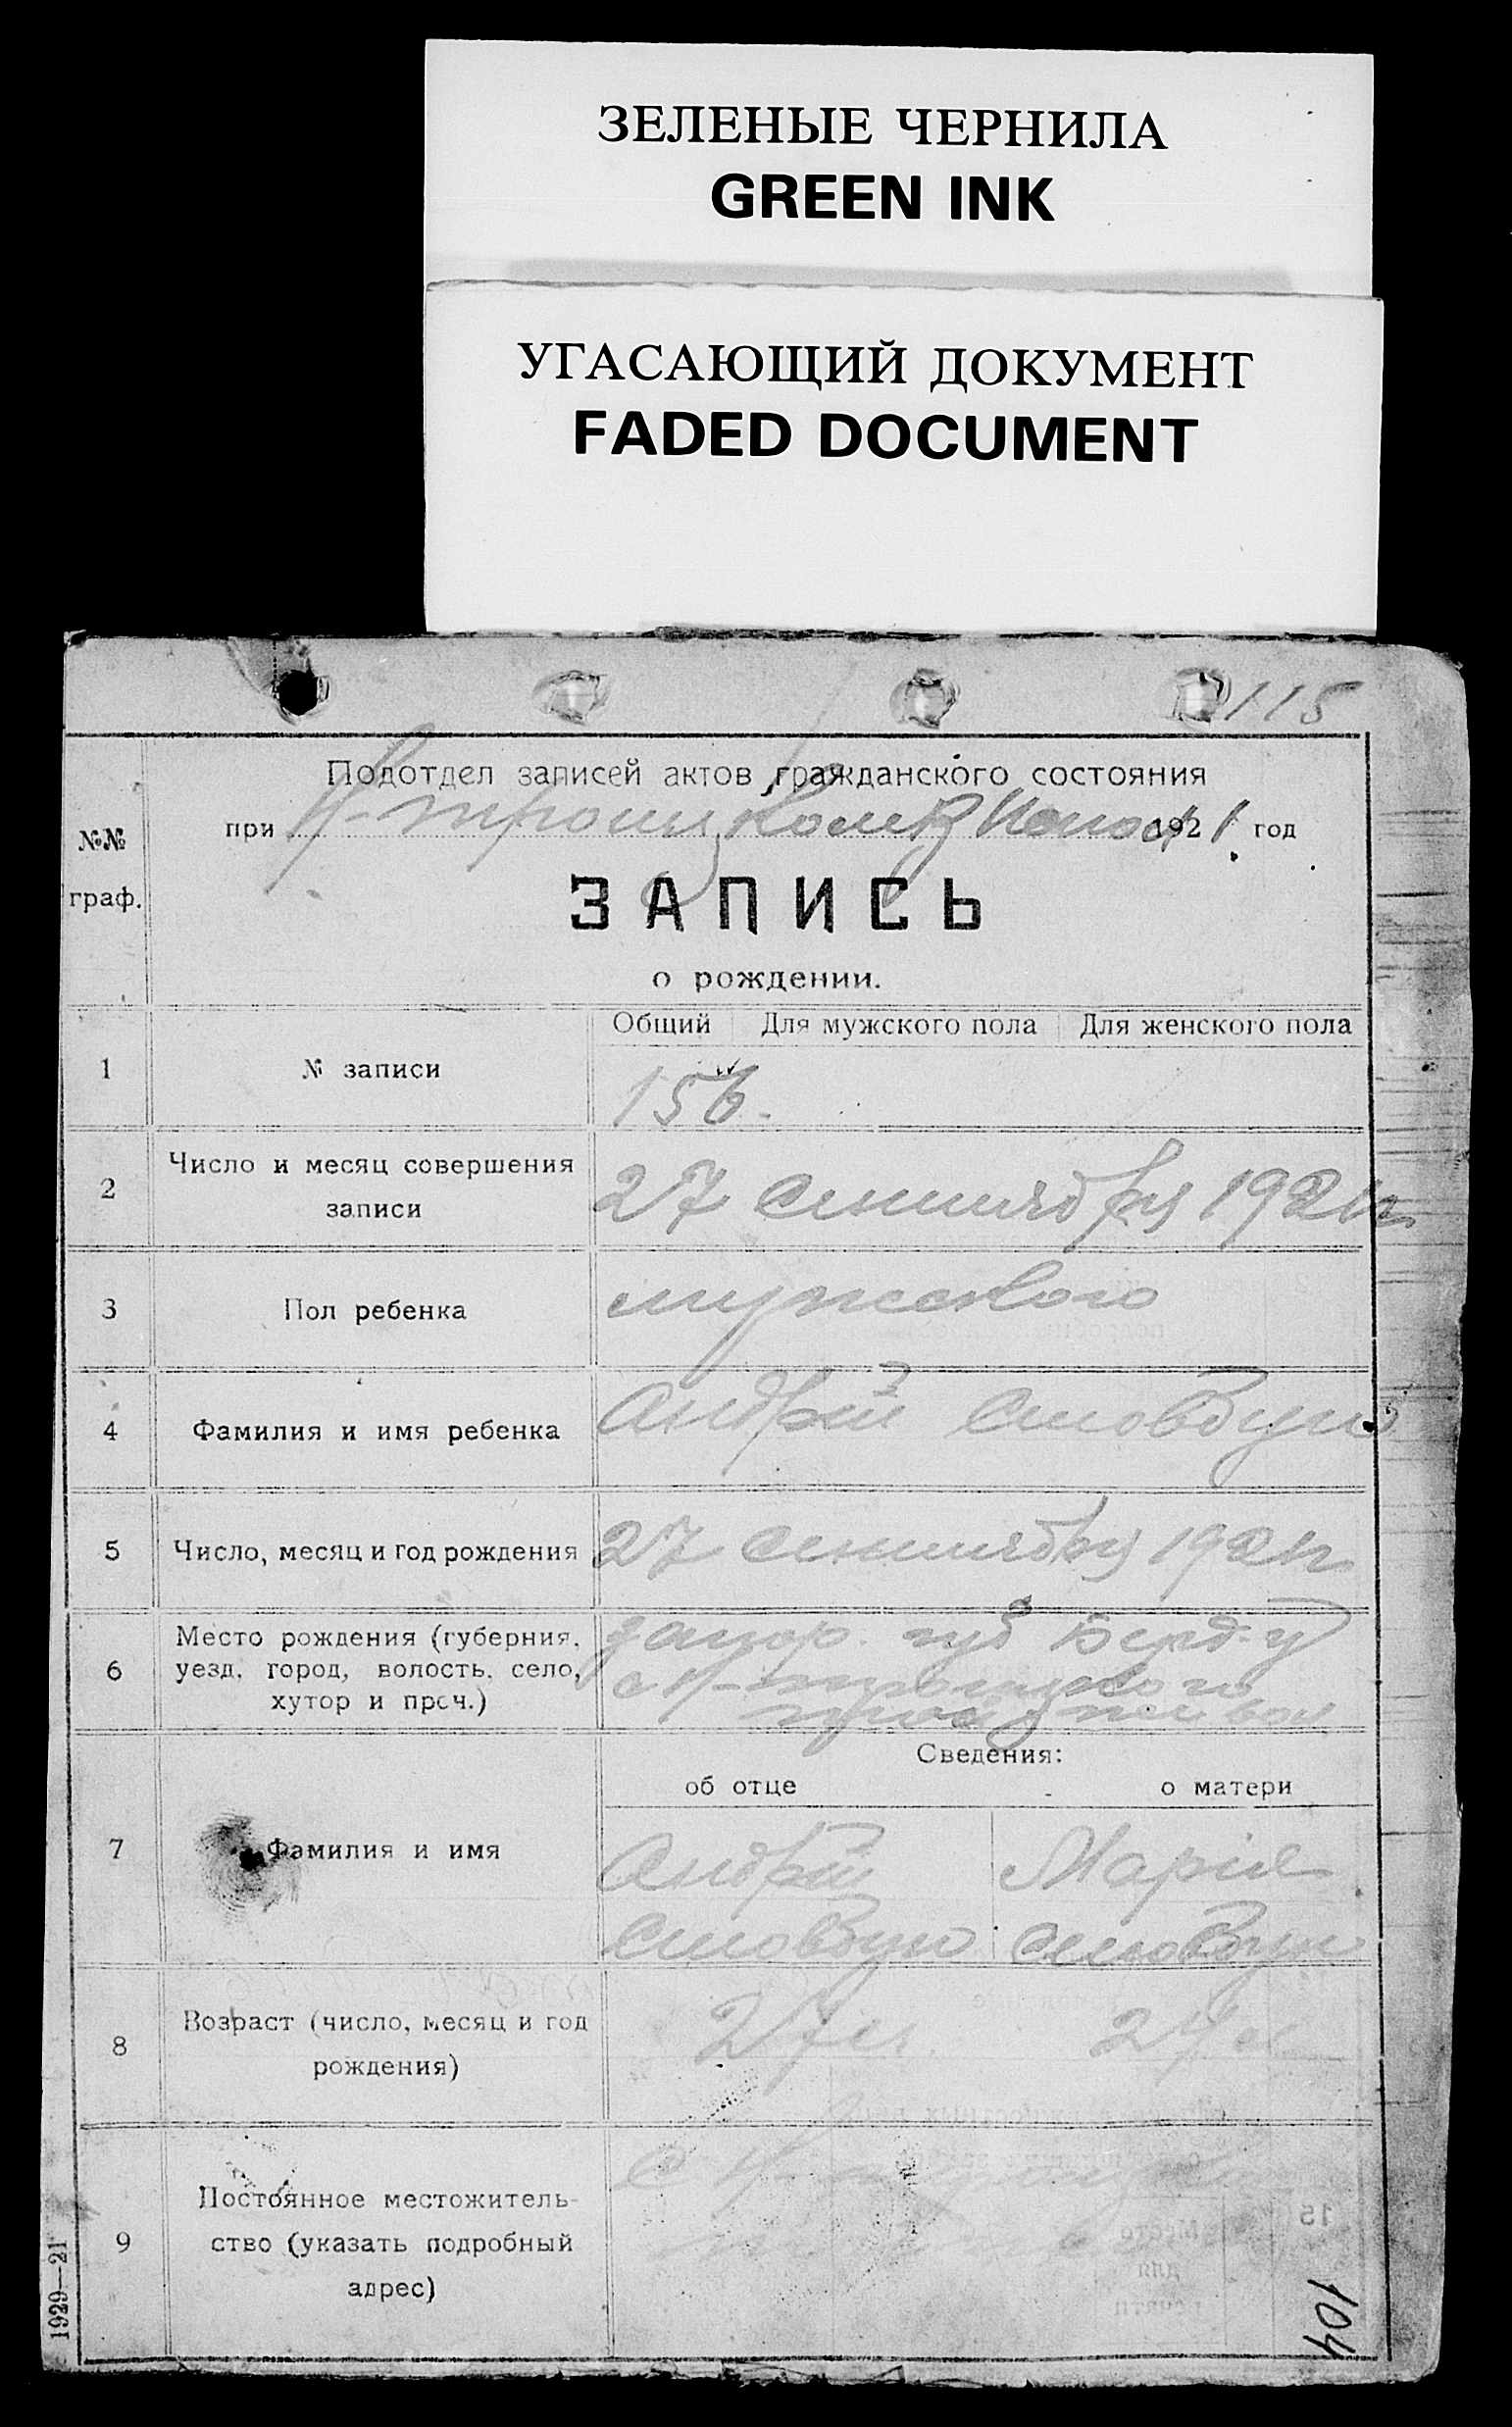 ЗЕЛЕНЫЕ ЧЕРНИЛА
GREEN INK
УГАСАЮЩИЙ ДОКУМЕНТ
FADED DOCUMENT
115
Подотдел записей актов гражданского состояния
при 1921 год
№№
граф.
ЗАПИСЬ
о рождении.
Общий Для мужского пола Для женского пола
1 № записи 156.
2 Число и месяц совершения
записи
27 сентября 1921 г.
3 Пол ребенка мужеского
4 Фамилия и имя ребенка Андрій Стовбун
5 Число, месяц и год рождения 27 сентября 1921 г.
6 Место рождения (губерния,
уезд, город, волость, село,
хутор и проч.)
Запор. губ Берд. у
с Н-троицкого
вол
Сведения:
об отце о матери
7 Фамилия и имя
Андрій Марія
Стовбун Стовбун
8 Возраст (число, месяц и год
рождения)
27 л. 27 л
9 Постоянное местожитель-
ство (указать подробный
адрес)
с Н-
1929—21
104